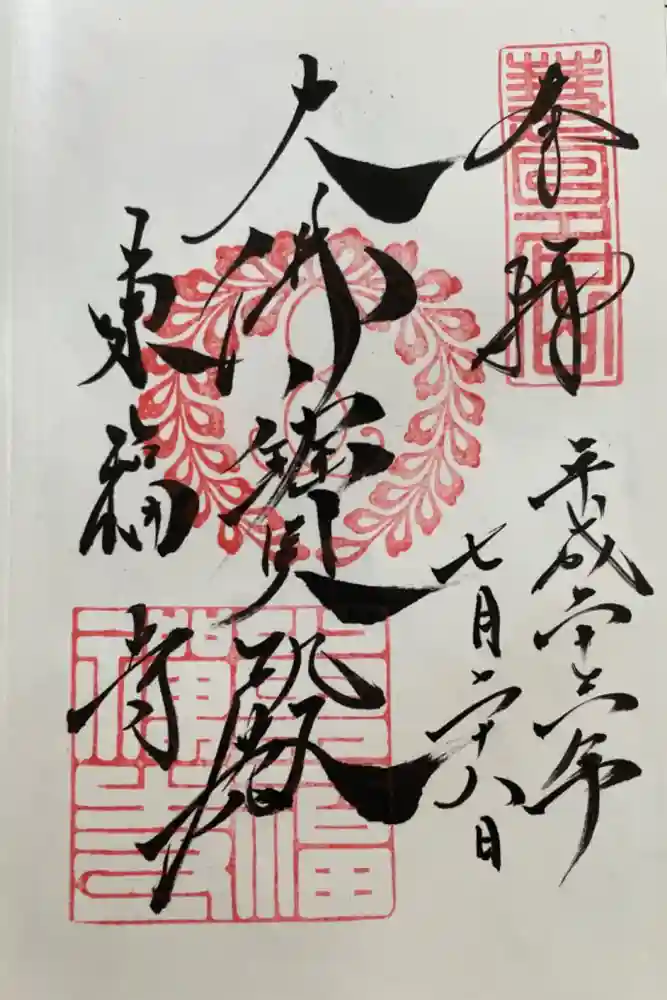 奉拝
平成二十六年
七月二十八日
大佛寳殿
東福寺
慧日山
東福禅寺